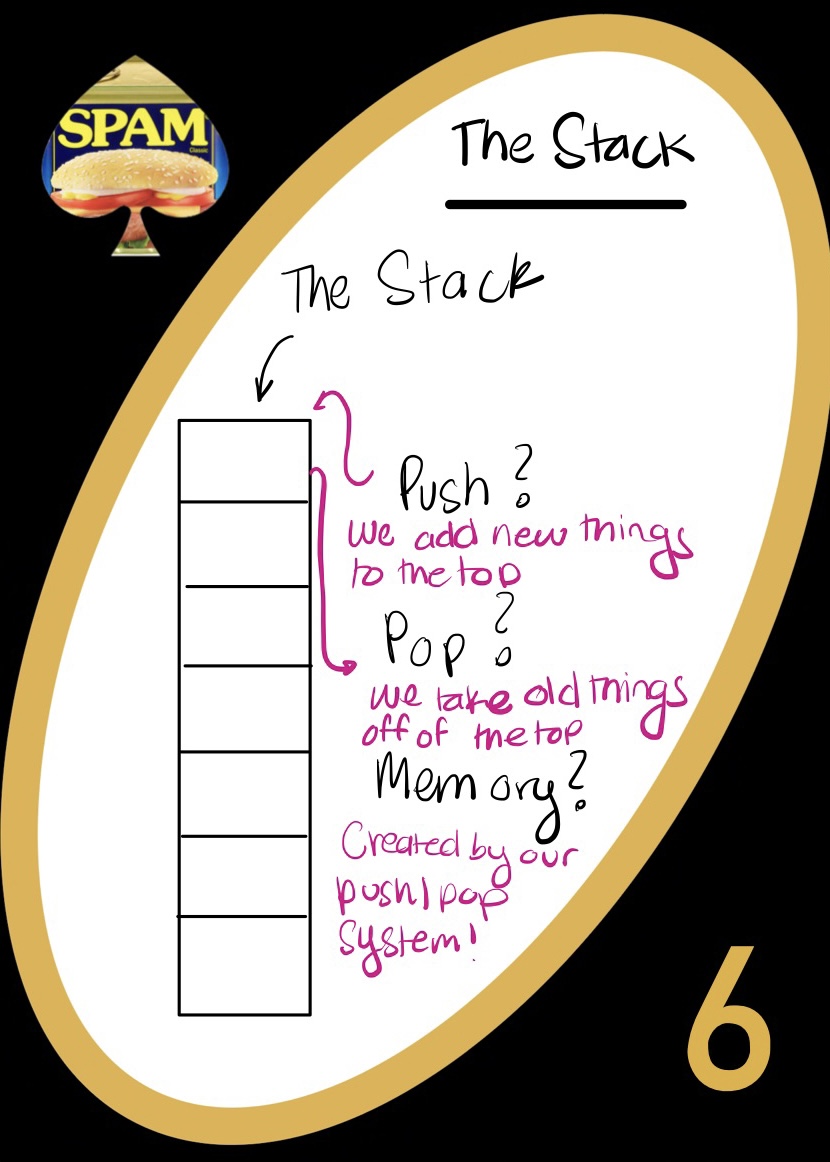 SPAM
Classic
The Stack
The Stack
Push?
We add new things
to the top
Pop?
We take old things
off of the top
Memory?
Created by our
push/pop
System!
6